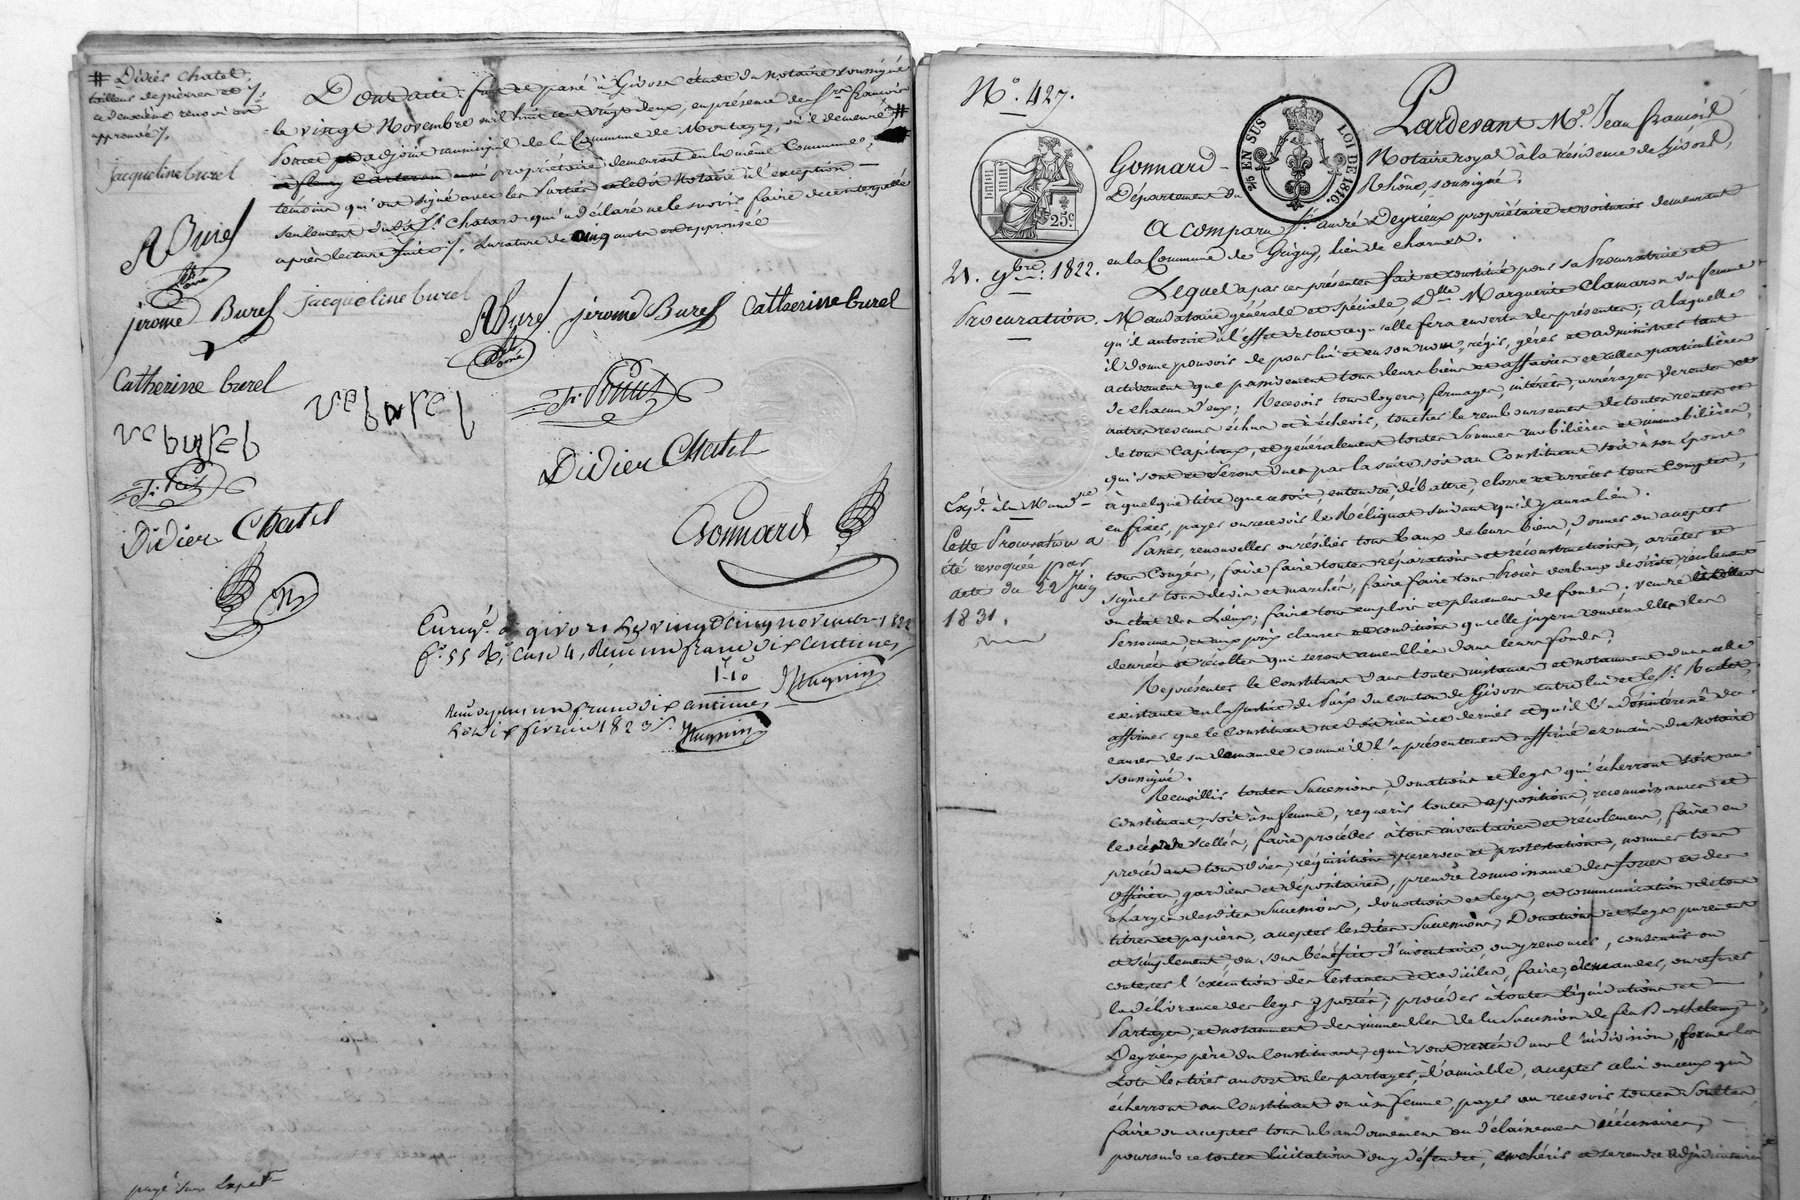 # Didier Chatel,
tailleur de pierres et
ce deuxième renvoi est
approuvé
jacqueline burel
A Burel
jerome Burel
Catherine burel
Didier Chatel
Dont acte. fait et passé à Givors étude du notaire soussigné
le vingt Novembre mil huit cent vingt deux, en présence de Sr. françois
adjoint municipal de la Commune de Montagny, où il demeure #
propriétaire demeurant en la même Commune,
témoins qu'ont signé avec les Parties et ledit Notaire à l'exception
seulement dudit Sr. Chatard qui a déclaré ne le savoir faire de ce interpellé
après lecture faite. rature de cinq mots est approuvée
jacqueline burel
A Burel jerome Burel Catherine burel
Didier Chatel
Gonnard
Enregé. à givors le vingt cinq novembre 1822
fo. 55 Ro. Case 4, Reçu un franc dix centimes,
1-10
Reçu un franc dix centimes
Le dix février 1823
No. 427.
25c.
26 EN SUS
LOI DE 1816.
21. 9bre. 1822.
Procuration.
Cette Procuration a
été revoquée par
acte du 22 Juin
1831.
Pardevant Me. Jean françois
Gonnard Notaire royal à la résidence de Givors,
Département du Rhône, soussigné.
A comparu Sr. André Deyrieux propriétaire et voiturier demeurant
en la Commune de Grigny, lieu de charnet.
Lequel a par ces présentes fait et constitué pour sa Procuratrice et
Mandataire générale et spéciale, Dlle Marguerite Clamaron sa femme
qu'il autorise à l'effet de tout ce qu'elle fera en vertu des présentes; à laquelle
il donne pouvoir de pour lui et en son nom, régir, gérer et administrer tant
activement que passivement tous leurs biens et affaires et celles particulières
de chacun d'eux; Recevoir tous loyers, fermages, intérêts, arrérages de rentes et
autres revenus échus et à échoir, toucher le remboursement de toutes rentes et
de tous Capitaux, et généralement toutes Sommes mobilières et immobilières,
qui sont et seront dues par la suite soit au Constituant soit à son Epouse
à quelque titre que ce soit, entendre, débattre, clorre et arrêter tous Comptes,
en fixer, payer ou recevoir le Réliquat suivant qu'il y aura lieu.
Passer, renouveller ou résilier tous baux de leurs biens, donner ou accepter
tous Congés, faire faire toutes réparations et réconstructions, arrêter et
signer tous devis et marchés, faire faire tous Procès verbaux de visite, recolement
ou état des Lieux; faire tous emplois et placemens de fonds; vendre
aux prix clauses et conditions qu'elle jugera convenables les
denrées et récoltes qui seront ameublies dans leurs fonds;
Représenter le Constituant dans toutes instances et notamment dans celle
existante en la Justice de Paix du canton de Givors entre lui et le Sr.
affirmer que le Constituant ne doit rien à ce dernier et qu'il
causes de sa demande comme il l'a présentement affirmé ez mains du Notaire
soussigné.
Recueillir toutes Successions, Donations et legs qu'écherront soit au
Constituant, soit à sa femme, requérir toutes appositions, reconnoissances et
levées de scellés, faire procéder à tous inventaires et récolemens, faire en
procédant tous dires, réquisitions, réserves et protestations, nommer tous
officiers, gardiens et dépositaires, prendre connoissance des forces et des
charges desdites Successions, donations et legs, et communication de tous
titres et papiers, accepter lesdites Successions, Donations et legs purement
et simplement, ou sous bénéfice d'inventaire, ou y renoncer, consentir ou
contester l'exécution des Testamens et codiciles, faire, demander, ou refuser
la délivrance des legs y portés; procéder à toutes liquidations et
Partages, et notamment des immeubles de la Succession de feu Barthelemy
Deyrieux père du Constituant, qui sont restés dans l'indivision, former les
Lots les tirer au sort ou les partager, à l'amiable, accepter celui ou ceux qui
écherront au Constituant ou à sa femme, payer ou recevoir toutes Soultes,
faire ou accepter tous abandonnemens ou délaissemens nécessaires,
poursuivre toutes licitations ou y défendre, enchérir et se rendre adjudicataire